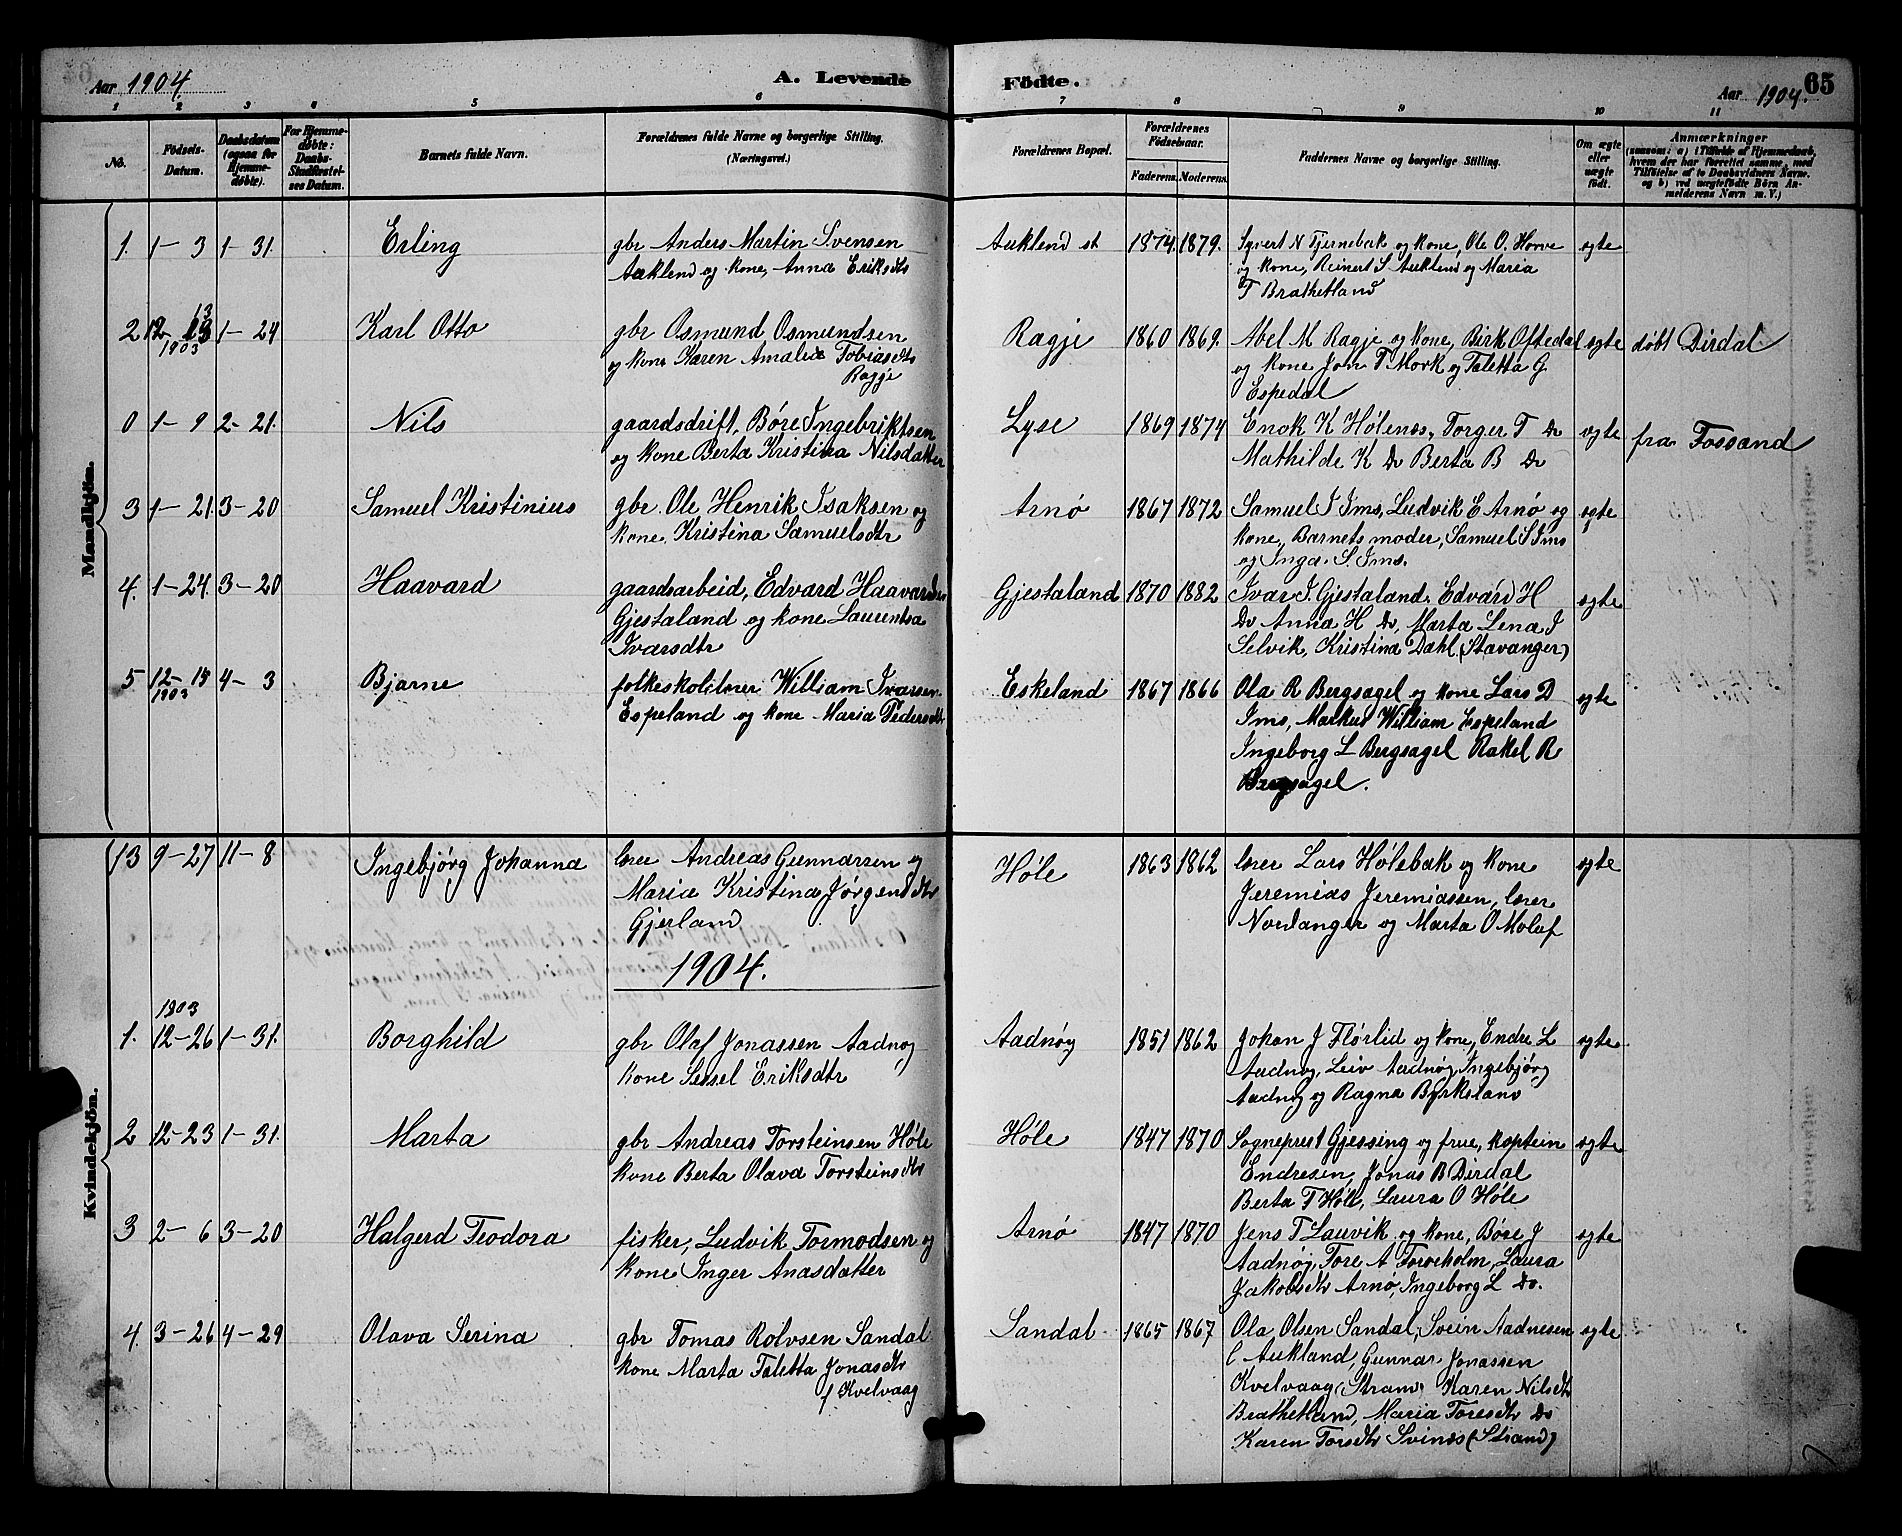 Aar 1904.
A. Levende
Födte.
Aar 1904.
65
1 2 3 4 5 6 7 8 9 10 11
No.
Födsels-Datum.
Daabsdatum (ogsaa for Hjemmedøbte).
For Hjemmedøbte: Daabs-Stadfæstelses Datum.
Barnets fulde Navn.
Forældrenes fulde Navne og borgerlige Stilling. (Næringsvei.)
Forældrenes Bopæl.
Forældrenes Födselsaar.
Faderens. Moderens.
Faddernes Navne og borgerlige Stilling.
Om ægte eller uægte födt.
Anmærkninger
(saasom: a) i Tilfælde af Hjemmedaab, hvem der har forrettet samme, med Tilföielse af to Daabsvidners Navne. og b) ved uægtefödte Börn Anmelderens Navn m. V.)
Mandkjön.
1. 1-3 1-31. Erling gbr Anders Martin Svensen Auklend st 1874. 1879. Syvert N Tjernebak og kone, Ole O. Horve egte
Auklend og kone, Anna Eriksdtr og kone, Reinert S Auklend og Maria
T Brathetland
2 12-13 1-24 Karl Otto gbr Osmund Osmundsen Ragje 1860 1869. Abel M Ragje og kone, Birk Oftedal egte døbt Dirdal
1903 og kone Karen Amalie Tobiasdtr og kone Jon T Mork og Taletta G
Ragje Espedal
0 1-9 2-21. Nils gaardsdrift. Børe Ingebriktsen Lyse 1869 1874 Enok K Hølenes, Torger T Do egte fra Fossand
og kone Berta Kristina Nilsdatter Mathilde K Do Berta B Do
3 1-21. 3-20 Samuel Kristinius gbr. Ole Henrik Isaksen og Arnø 1867 1872 Samuel I Ims, Ludvik E Arnø og egte
kone, Kristina Samuelsdtr kone, Barnets moder, Samuel S Ims
og Inga S. Ims.
4. 1-24. 3-20 Haavard gaardsarbeid, Edvard Haavardsen Gjestaland 1870 1882 Ivar I. Gjestaland, Edvard H egte
Gjestaland og kone Laurentsa Do Anna H Do, Marta Lena I
Ivarsdtr Selvik, Kristina Dahl (Stavanger)
5 12-15 4-3 Bjarne folkeskolelærer William Ivarsen Eskeland 1867 1866 Ola R Bergsagel og kone Lars D egte
1903 Espeland og kone Maria Pedersdtr Ims, Markus William Espeland
Ingeborg L Bergsagel Rakel R
Bergsagel.
Kvindekjön.
13 9-27 11-8 Ingebjørg Johanna lærer Andreas Gunnarsen og Høle 1863 1862 lærer Lars Hølsbak og kone egte
Maria Kristina Jørgensdtr Jeremias Jeremiassen, lærer
Gjerland Nordanger og Marta O Molaf
1904.
1903
1. 12-26 1-31. Borghild gbr Olaf Jonassen Aadnøy Aadnøy 1851 1862 Johan J Flørlid og kone, Endre L egte
kone Sissel Eriksdtr Aadnøy, Leiv Aadnøy, Ingebjørg
Aadnøy og Ragna Byrkeland
2 12-23 1-31. Marta gbr Andreas Torsteinsen Høle Høle 1847 1870 Sogneprest Gjessing og frue, kaptein egte
kone Berta Olava Torsteinsdtr Endresen, Jonas B Dirdal
Berta T Høle, Laura O Høle
3 2-6 3-20 Halgerd Teodora fisker, Ludvik Tormodsen og Arnø 1847 1870 Jens T Lauvik og kone, Børe J egte
kone Inger Anasdatter Aadnøy, Tore A Foreholm, Laura
Jakobsdtr Arnø, Ingeborg L Do.
4. 3-26 4-29 Olava Serina gbr Tomas Rolvsen Sandal Sandal 1865 1867 Ola Olsen Sandal, Svein Aadnesen egte
kone Marta Taletta Jonasdtr Aukland, Gunnar Jonassen
f Kvelvaag Kvelvaag (Strand) Karen Nilsdtr
Brathetland, Maria Toresdtr Do
Karen Torsdtr Svines (Strand)